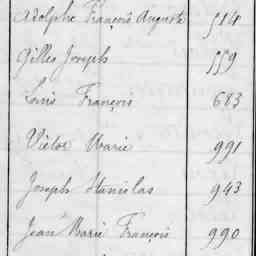 Adolphe François Auguste 514
Gilles Joseph 559
Louis François 683
Victor Marie 991
Joseph Stanislas 943
Jean Marie François 990